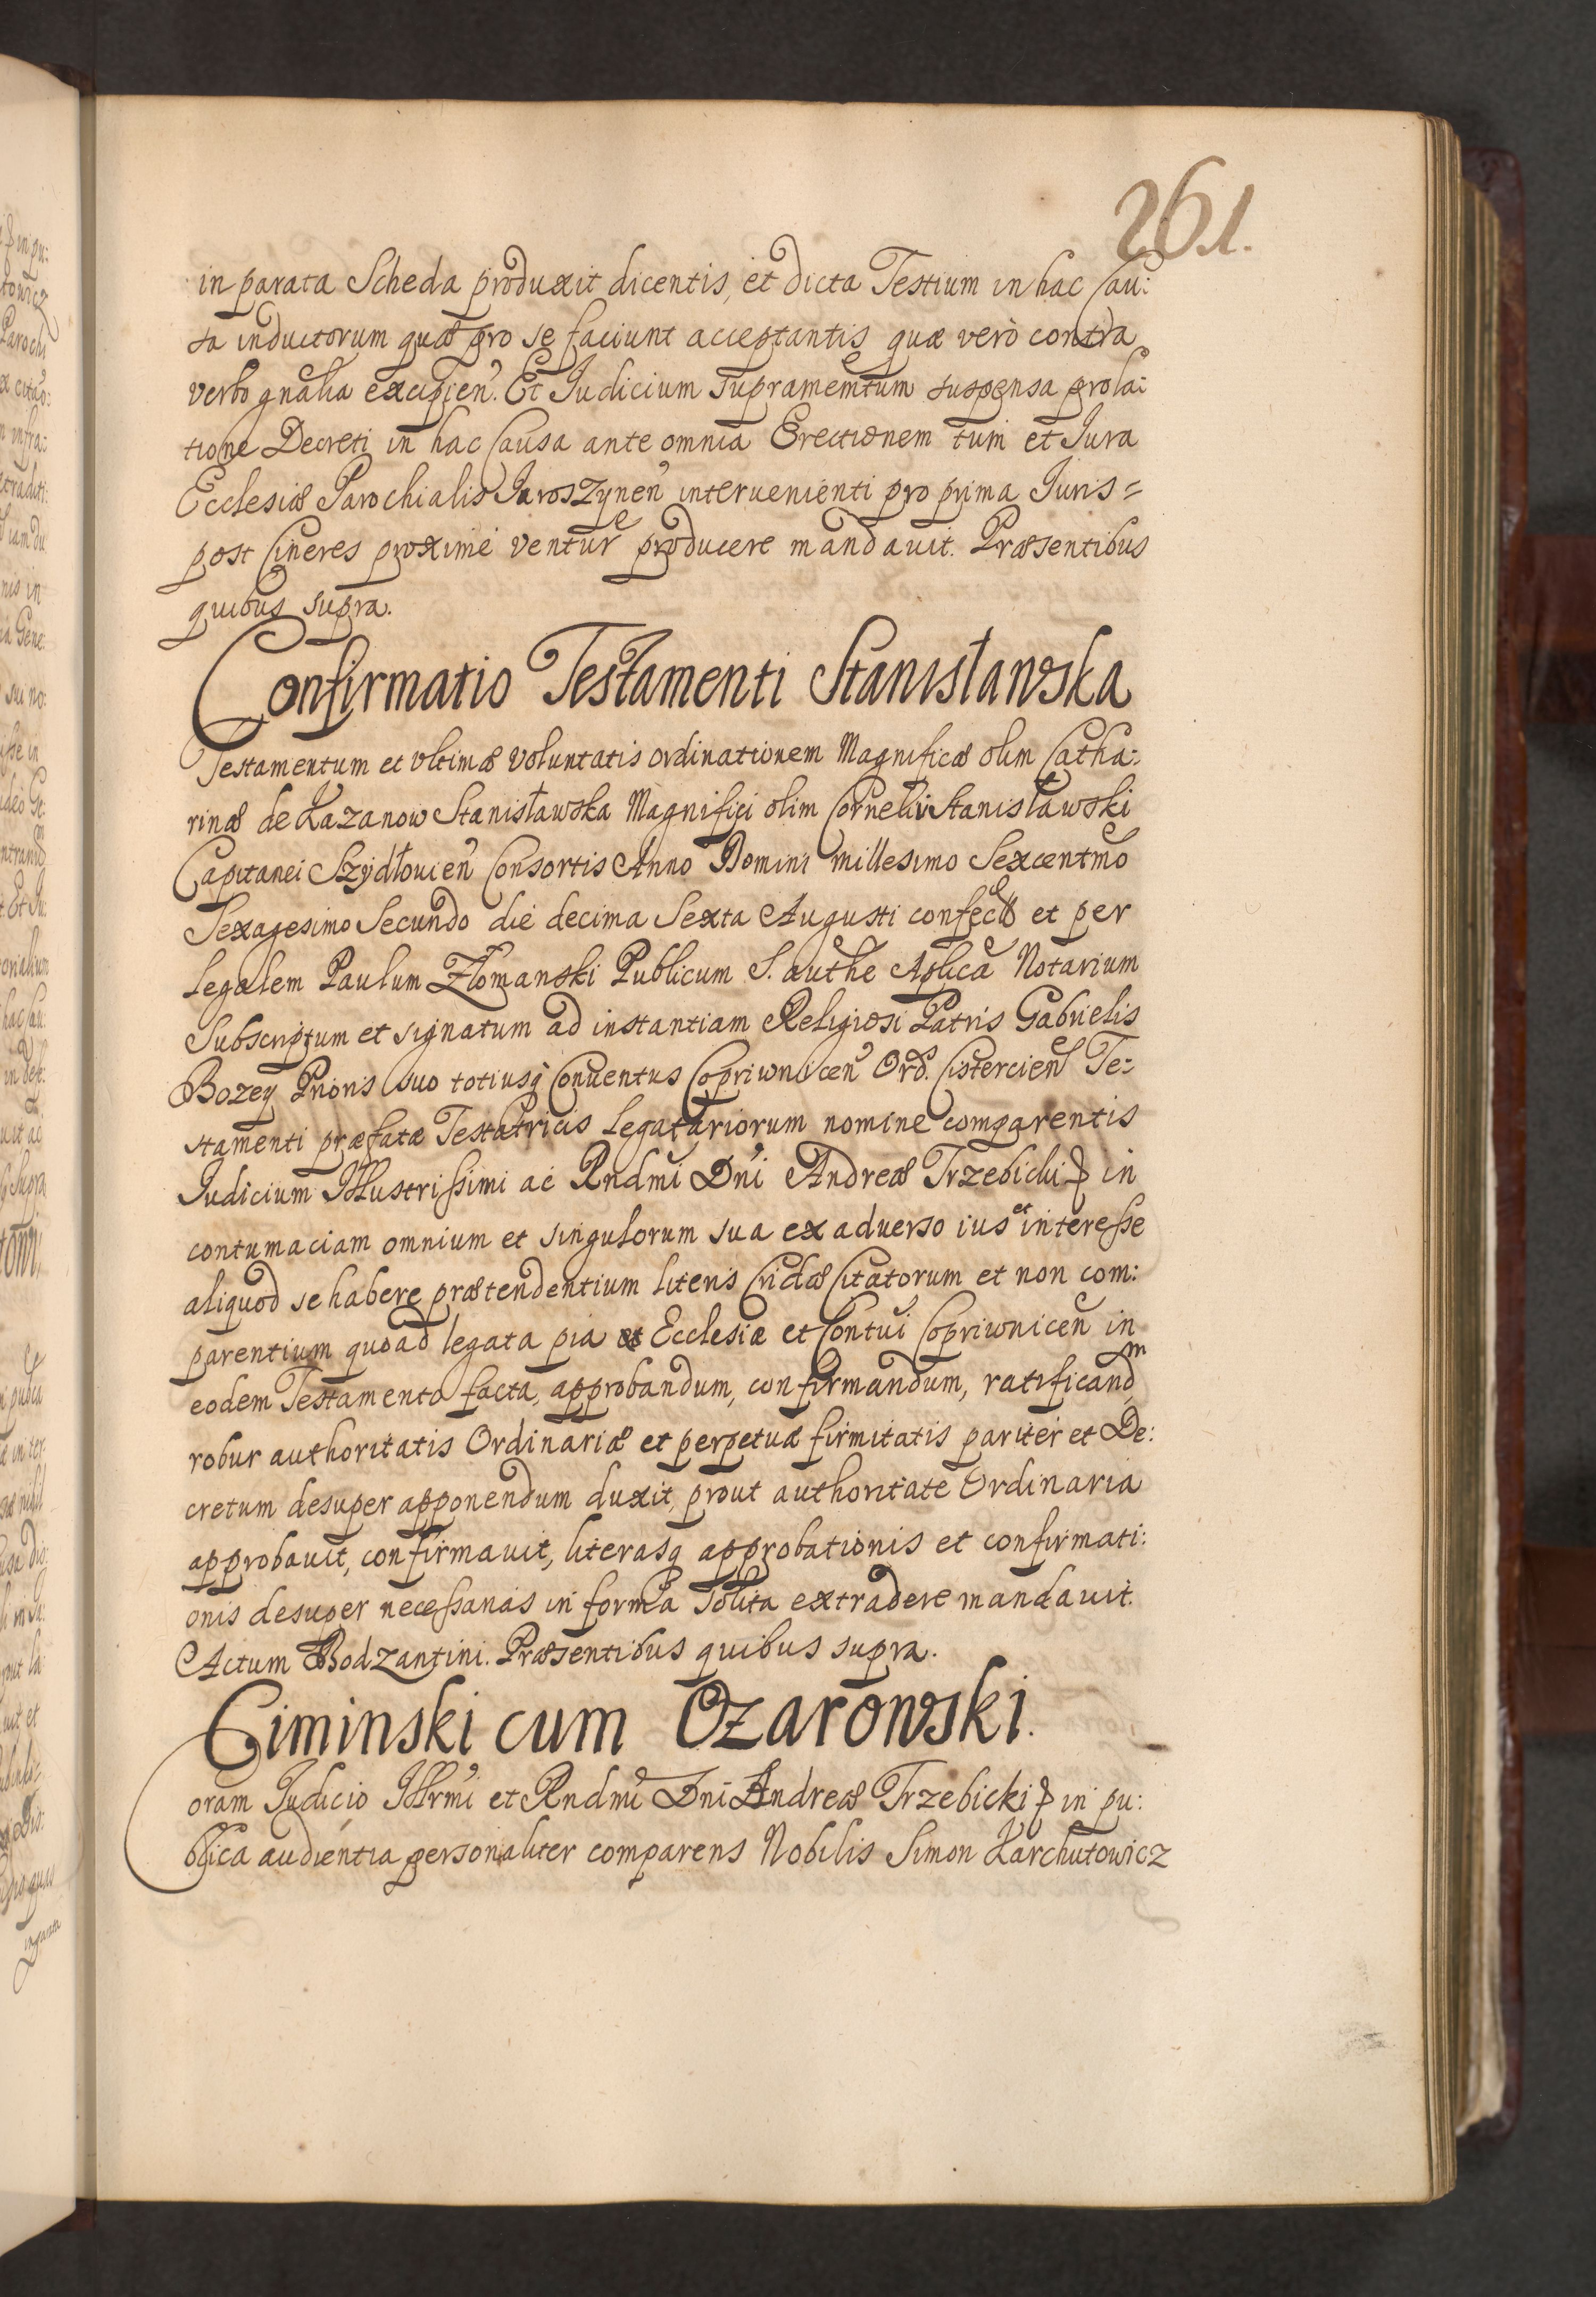 261.
in parata Scheda produxit dicentis, et dicta Testium in hac Cau:
sa inductorum quæ pro se faciunt acceptantis quæ verò contra
verbo gnalia excipien. Et Judicium supramemtum suspensa prola:
tione Decreti in hac Causa ante omnia Erectionem tum et Jura
Ecclesiæ Parochialis Jaroszynen intervenienti pro prima Juris=
post Cineres proxime ventur producere mandavit. Præsentibus
quibus supra.
Confirmatio Testamenti Stanisławska
Testamentum et vltimæ voluntatis ordinationem Magnificæ olim Catha:
rinæ de Kazanow Stanisławska Magnifici olim Cornelii Stanisławski
Capitanei Szydłouien Consortis Anno Domini millesimo Sexcentmo
Sexagesimo Secundo die decima Sexta Augusti confect et per
legalem Paulum Złomanski Publicum S. authe Aplica Notarium
Subscriptum et signatum ad instantiam Religiosi Patris Gabrielis
Bozey Prioris suo totiusq Conuentus Copriwnicen Ord. Cistercien Te:
stamenti præfatæ Testatricis legatariorum nomine comparentis
Judicium Illustrissimi ac Rndmi Dni Andreæ Trzebicki in
contumaciam omnium et singulorum sua ex aduerso ius et interesse
aliquod se habere prætendentium literis Cridæ Citatorum et non com:
parentium quoad legata pia et Ecclesiæ et Contui Copriwnicen in
eodem Testamento facta, approbandum, confirmandum, ratificandm
robur authoritatis Ordinariæ et perpetuæ firmitatis pariter et De:
cretum desuper apponendum duxit, prout authoritate Ordinaria
approbauit, confirmauit, literasq approbationis et confirmati:
onis desuper necessarias in forma solita extradere mandauit.
Actum Bodzantini. Præsentibus quibus supra.
Ciminski cum Ozarowski.
Coram Judicio Illrmi et Rndmi Dni Andreæ Trzebicki in pu:
blica audientia personaliter comparens Nobilis Simon Karchutowicz